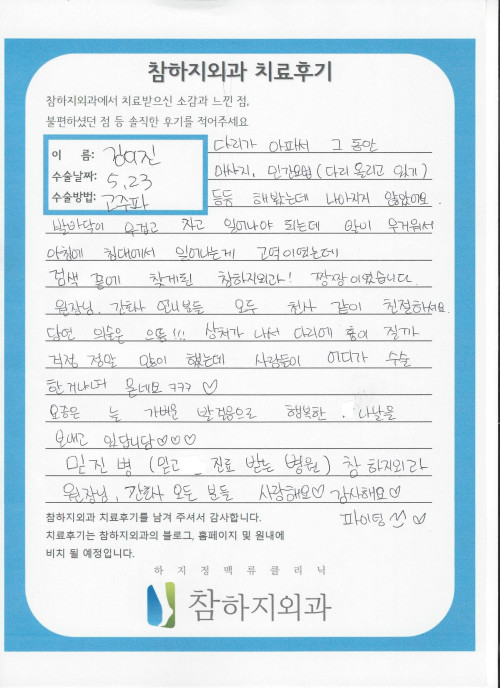 참하지외과 치료후기
참하지외과에서 치료받으신 소감과 느낀 점,
불편하셨던 점 등 솔직한 후기를 적어주세요
이 름: 김여진
수술날짜: 5.23
수술방법: 고주파
다리가 아파서 그 동안
마사지, 민간요법(다리 올리고 있기)
등등 해봤는데 나아지지 않았어요.
발바닥이 무겁고 자고 일어나야 되는데 맘이 무거워서
아침에 침대에서 일어나는게 고역이였는데
검색 끝에 찾게된 참하지외과! 짱짱이였습니다.
원장님, 간호사 언니분들 모두 천사 같이 친절하세요.
당연 의술은 으뜸!!! 상처가 나서 다리에 흉이 질까
걱정 정말 많이 했는데 사람들이 어디가 수술
한거냐며 묻네요 ㅋㅋㅋ ♡
요즘은 늘 가벼운 발걸음으로 행복한 . 나날을
보내고 있답니당♡♡♡
믿진병 (믿고 _ 진료 받는 병원) 참 하지외과
원장님, 간호사 모든 분들 사랑해요♡ 감사해요♡
파이팅 ♡
참하지외과 치료후기를 남겨 주셔서 감사합니다.
치료후기는 참하지외과의 블로그, 홈페이지 및 원내에
비치 될 예정입니다.
하지정맥류클리닉
참하지외과